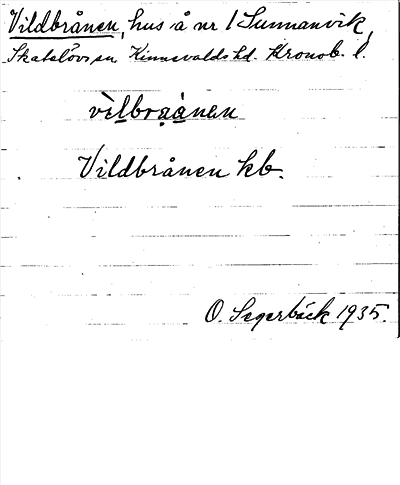 Vildbrånen, hus å nr 1 Sunnanvik,
Skatelövs sn Kinnevalds hd. Kronob. l.
vìlbraànen
Vildbrånen kb.
O. Segerbäck 1935.